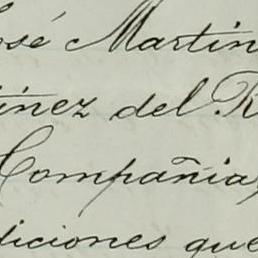 José Martin
tínez del R
Compañia,
diciones que